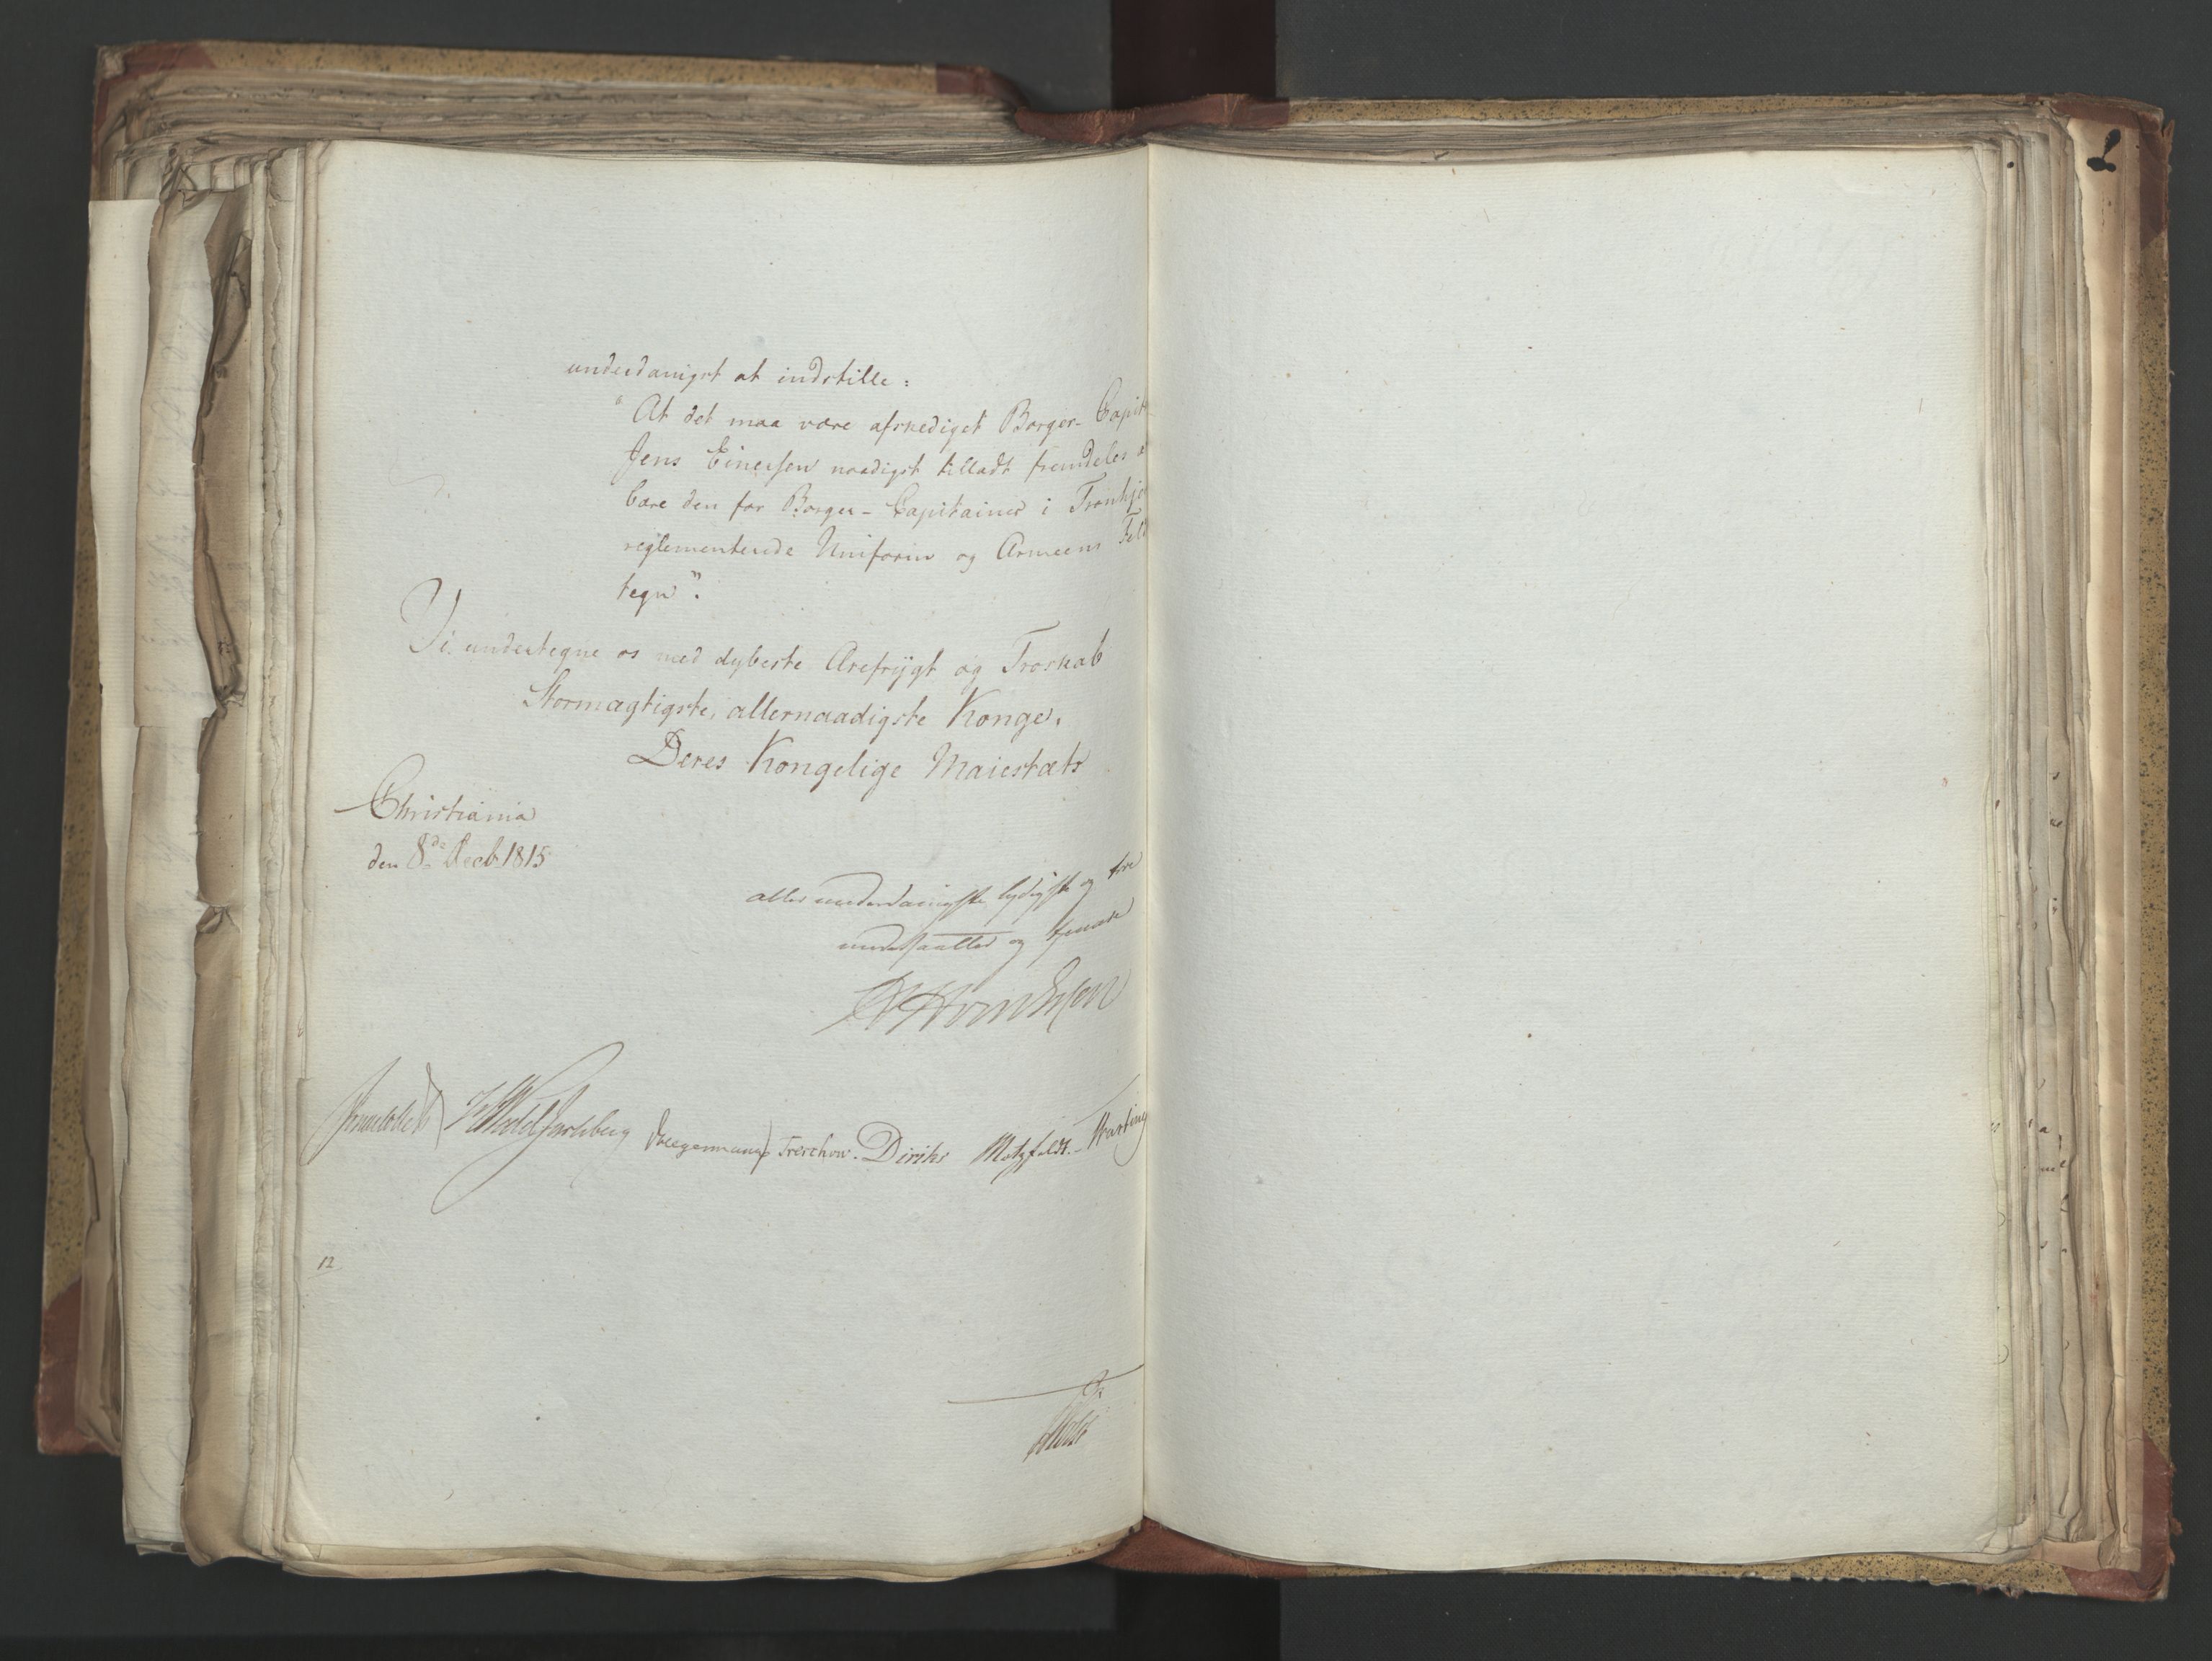 underdanigst at indstille:
"At det maa være afskediget Borger-Capit
Jens Einersen naadigst tilladt fremdeles a
bære den for Borger-Capitainer i Tronhje
reglementerede Uniform og Armeens Felt
tegn".
Vi undertegne os med dybeste Ærefrygt og Troskab
Stormægtigste, allernaadigste Konge,
Deres Kongelige Maiestæts
Christiania
den 8de Decb 1815
allerunderdanigste lydigste og troe
undersaatter og tjenere
Wedel Jarlsberg Treschow. Diriks Motzfeldt.
12
Holst